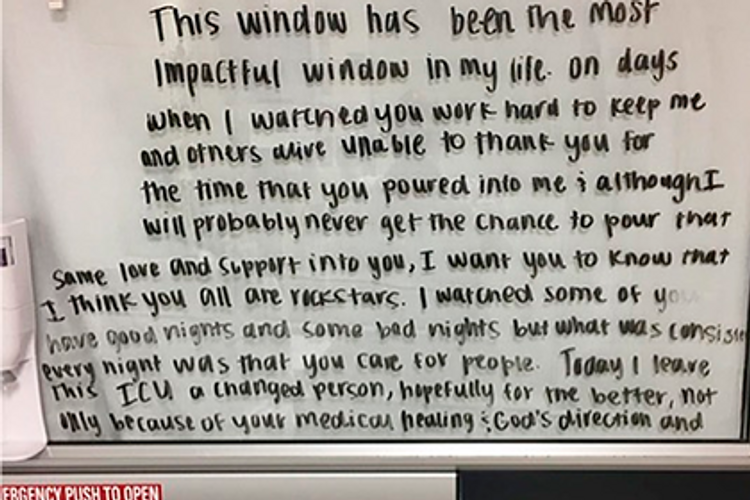 This window has been the most
impactful window in my life. on days
when I watched you work hard to keep me
and others alive unable to thank you for
the time that you poured into me & although I
will probably never get the chance to pour that
same love and support into you, I want you to know that
I think you all are rockstars. I watched some of you
have good nights and some bad nights but what was consiste
every night was that you care for people. Today I leave
This ICU a changed person, hopefully for the better, not
only because of your medical healing & God's direction and
ERGENCY PUSH TO OPEN